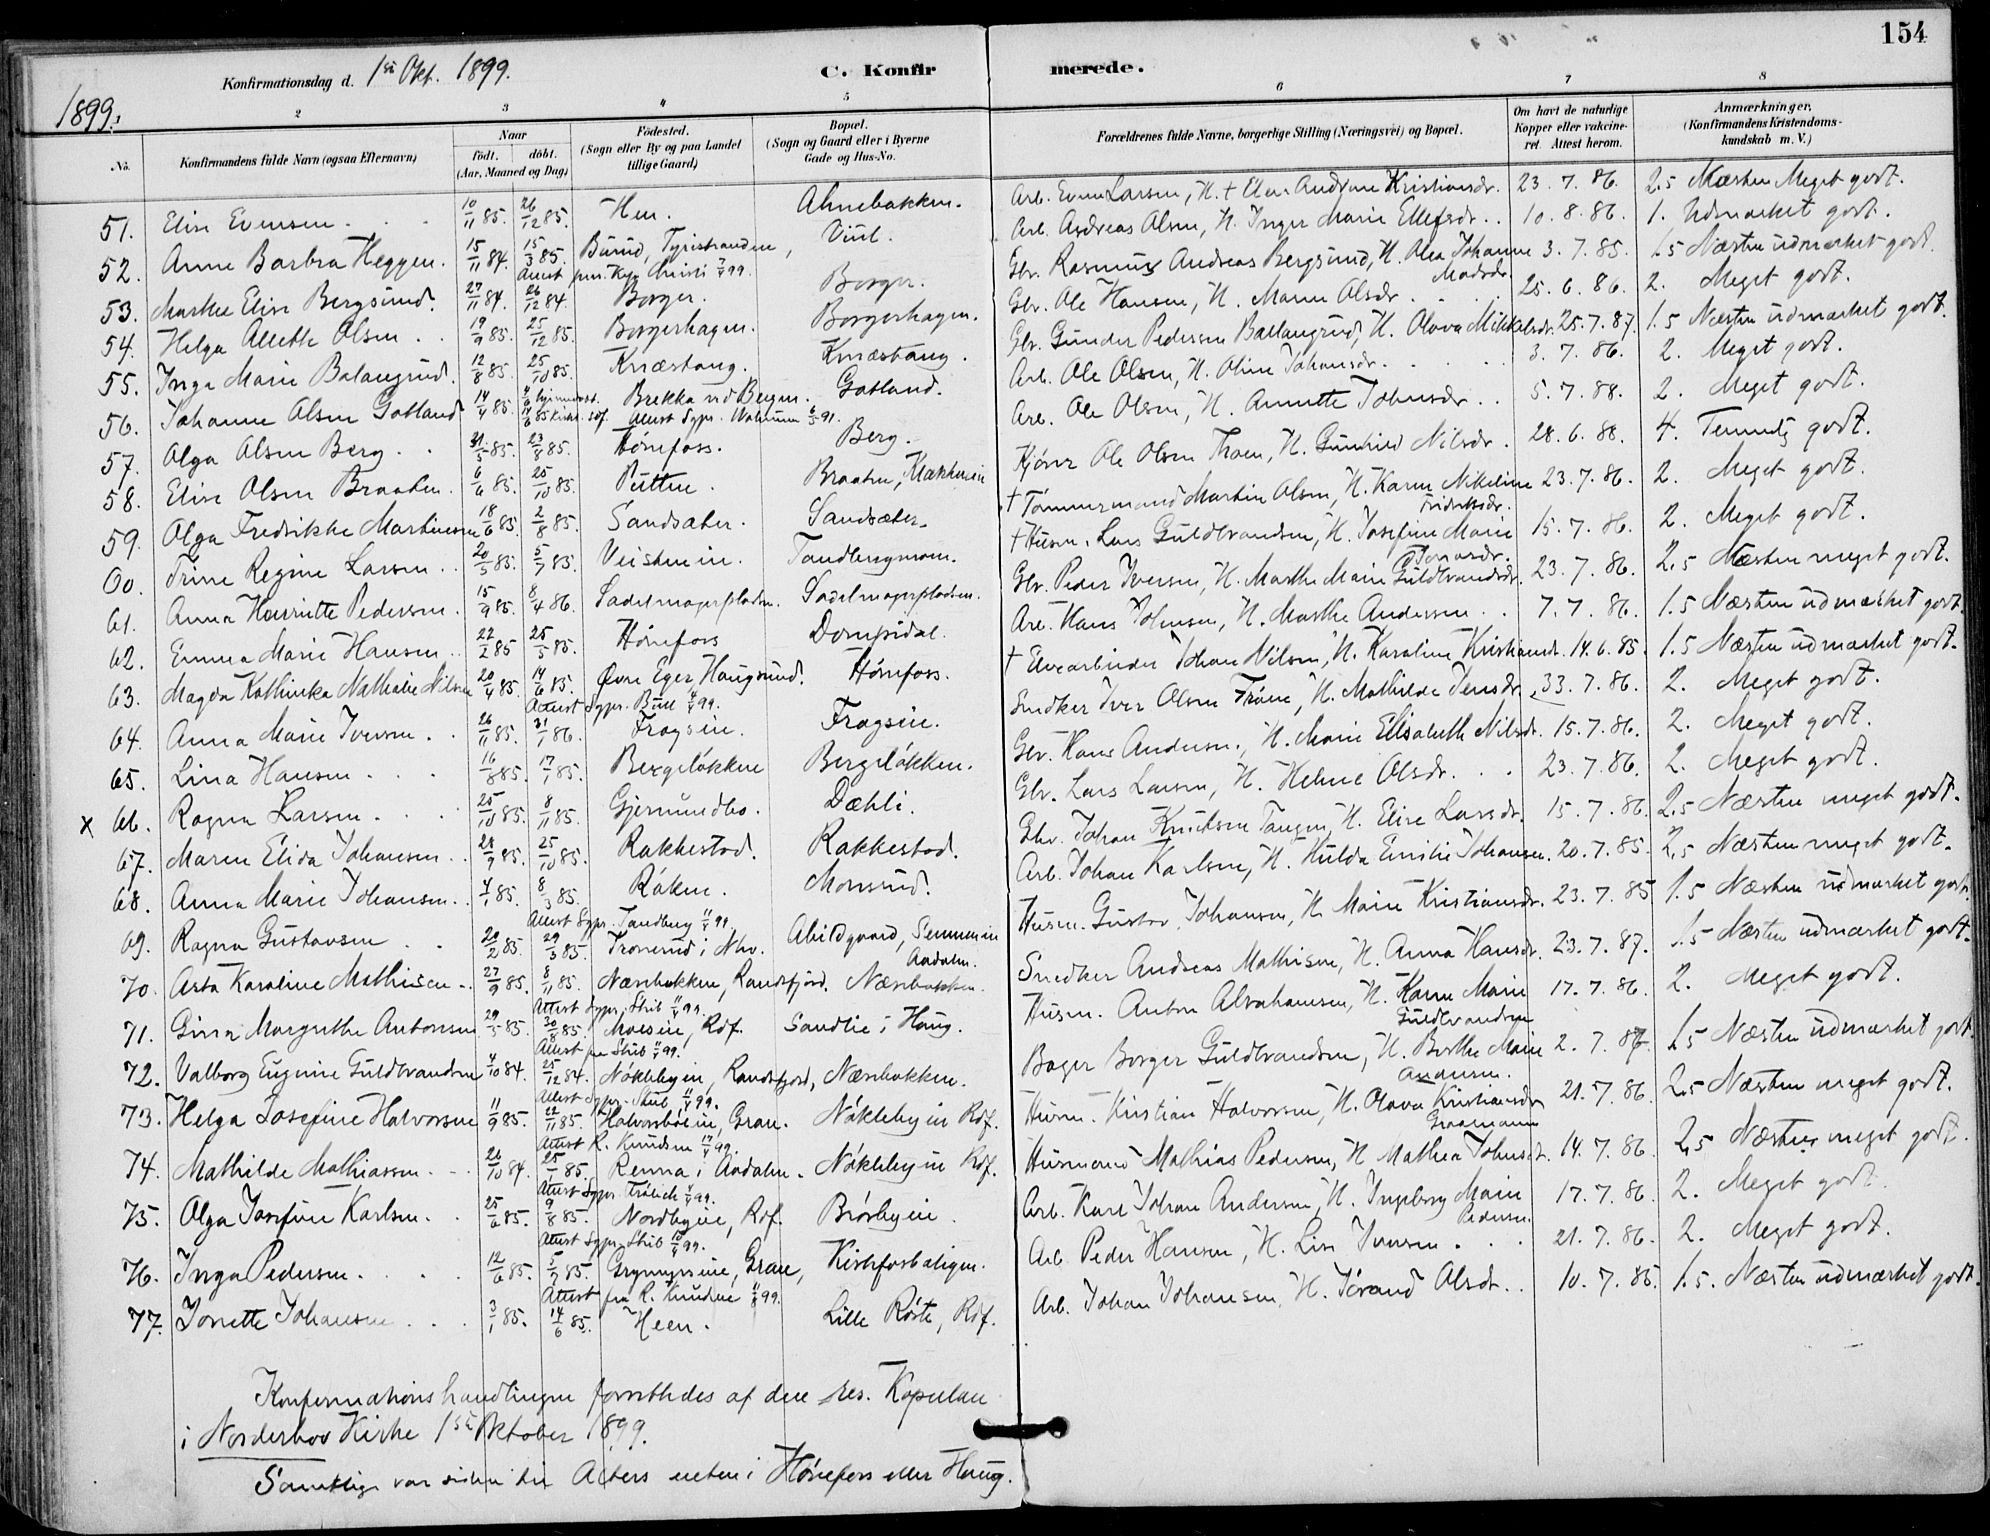 154
Konfirmationsdag d. 1ste Okt. 1899. C. Konfirmerede.
1899.
1 2 3 4 5 6 7 8
No. Konfirmandens fulde Navn (ogsaa Efternavn) Naar født. døbt. (Aar, Maaned og Dag) Fødested. (Sogn eller By og paa Landet tillige Gaard) Bopæl. (Sogn og Gaard eller i Byerne Gade og Hus-No. Forældrenes fulde Navne, borgerlige Stilling (Næringsvei) og Bopæl. Om havt de naturlige Kopper eller vakcineret. Attest herom. Anmærkninger. (Konfirmandens Kristendomskundskab m. V.)
51. Elise Evensen 10/11 85. 26/12 85. Hen. Almebakken. Arb. Even Larsen, H. + Elen Andrine Kristiansdr. 23. 7. 86. 2.5 Næsten Meget godt.
52. Anne Barbra Heggen. 15/11 84. 15/3 85. Burud, Tyristranden, Viul. Arb. Andreas Olsen, H. Inger Marie Ellefsdr. 10. 8. 86. 1. Udmærket godt.
53. Marthe Elise Bergsund. 27/11 84. 26/12 84. Borger. Borger. Gbr. Rasmus Andreas Bergsund, H. Alea Johanne Madsdr. 3. 7. 85. 1.5 Næsten udmærket godt.
54. Helga Alette Olsen 19/9 85. 25/12 85. Borgerhagen. Borgerhagen. Gbr. Ole Hansen, H. Maren Olsdr. 25. 6. 86. 2. Meget godt.
55. Inga Marie Balangrud. 12/8 85. 25/10 85. Knæstang. Knæstang. Gbr. Gunder Pedersen Ballangrud, H. Olava Mikkelsdr. 25. 7. 87. 1.5 Næsten udmærket godt.
56. Johanne Olsen Gotland 14/4 85. Brekka ved Bergen. Gotland. Arb. Ole Olsen, H. Oline Johansdr. 3. 7. 86. 2. Meget godt.
57. Olga Olsen Berg 31/5 85. 23/8 85. Hønefoss. Berg. Arb. Ole Olsen, H. Annette Johnsdr. 5. 7. 88. 2. Meget godt.
58. Elise Olsen Braaten. 6/6 85. 25/10 85. Putten. Braaten, Kjører Ole Olsen Troen, H. Gunhild Nilsdr. 28. 6. 88. 4. Temmelig godt.
59. Olga Fredrikke Martinsen 18/6 85. 2/8 85. Sandsæter. Sandsæter. + Tømmermand Martin Olsen, H. Karen Nikeline Fredriksdr. 23. 7. 86. 2. Meget godt.
60. Trine Regine Larsen 20/5 85. 5/7 85. Veisteinen. Tandbergmoen. + Husm. Lars Guldbrandsen, H. Josefine Marie 15. 7. 86. 2. Meget godt.
61. Anna Henriette Pedersen. 15/9 85. 8/4 86. Sadelmagerpladsen. Sadelmagerpladsen. Gbr. Peder Iversen, H. Marthe Marie Guldbrandsdr. 23. 7. 86. 2.5 Næsten meget godt.
62. Emma Marie Hansen 22/2 85 25/5 85. Hønefoss Dompidal. Arb. Hans Johnsen, H. Marthe Andersen 7. 7. 86. 1.5 Næsten udmærket godt.
63. Magda Kathinka Nathalie Nilsen 20/4 85. 14/6 85. Øvre Eger, Haugsund. Hønefoss. + Elvearbeider Johan Nilsen, H. Karoline Kristiansdr. 14. 6. 85. 1.5 Næsten udmærket godt.
Attest Sgpr. Bull 4/9 99.
64. Anna Marie Iversen 26/11 85. 31/1 86. Fragsein. Fragsein. Snedker Iver Olsen Frøine, H. Mathilde Jensdr. 33. 7. 86. 2. Meget godt.
65. Lina Hansen 16/8 85. 17/1 85. Bergeløkken Bergeløkken. Gbr. Hans Andersen, H. Marie Elisabeth Nilsdr. 15. 7. 86. 2. Meget godt.
x 66. Ragna Larsen 25/10 85. 8/11 85. Gjermundbo. Dæhli. Gbr. Lars Larsen, H. Helene Olsdr. 23. 7. 86. 2. Meget godt.
67. Maren Elida Johansen 28/9 85. 25/10 85. Rakkestad. Rakkestad. Gbr. Johan Knudsen Tangen, H. Elise Larsdr. 15. 7. 86. 2.5 Næsten meget godt.
68. Anna Marie Johansen 4/1 85. 8/3 85. Røken. Monsrud. Arb. Johan Karlsen, H. Hulda Emilie Johansen. 20. 7. 85. 2.5 Næsten meget godt.
Attest Sgpr. Tandberg 11/4 99.
69. Ragna Gustavsen 20/2 85. 29/3 85. Tronrud i Nhv. Abildgaard, Semmen i Aadalen. Husm. Gustav Johansen, H. Marie Kristiansdr. 23. 7. 85 1.5 Næsten udmærket godt.
70. Asta Karoline Mathisen 27/9 85. 8/11 85. Næsbakken, Randsfjord. Næsbakken. Snedker Andreas Mathisen, H. Anna Hansdr. 23. 7. 87. 1.5 Næsten udmærket godt.
Attest Sgpr. Skib 11/4 99.
71. Gina Margrethe Antonsen 29/5 85. 30/8 85. Moesin, Rdf. Sandlie i Haug. Husm. Anton Abrahamsen, H. Karen Marie Guldbrandsen 17. 7. 86. 2. Meget godt.
Attest fra Skib 11/4 99.
72. Valborg Eugenie Guldbrandsen 4/10 84. 25/12 84. Nøklebyein, Randsfjord, Næsbakken. Bager Borger Guldbrandsen, H. Berthe Marie Andersen. 2. 7. 87. 1.5 Næsten udmærket godt.
Attest Sgpr. Skib 11/4 99.
73. Helga Josefine Halvorsen 11/9 85. 22/11 85. Halvorsbøein, Gran. Nøklebyein Rdf. Husm. Kristian Halvorsen, H. Olava Kristiansdr. 21. 7. 86. 2.5 Næsten meget godt.
Attest R. Knudsen 17/4 99.
74. Mathilde Mathiassen 26/10 84. 25/1 85. Renna i Aadalen. Nøklebyein Rdf. Husmand Mathias Pedersen, H. Mathea Johnsdr. 14. 7. 86. 2.5 Næsten meget godt.
Attest Sgpr. Frølich 4/4 99.
75. Olga Josefine Karlsen. 25/6 85. 9/8 85. Nordbyein, Rdf. Brørbyein. Arb. Karl Johan Andersen, H. Ingeborg Marie Pedersen 17. 7. 86. 2. Meget godt.
Attest Sgpr. Skib 10/4 99.
76. Inga Pedersen. 12/6 85. 5/7 85. Grymyrseie, Gran, Kistefosboligen. Arb. Peder Hansen, H. Lise Iversen. 21. 7. 86. 2. Meget godt.
Attest fra R. Knudsen 11/8 99.
77. Jonette Johansen 3/1 85. 14/6 85. Heen. Lille Røste, Rdf. Arb. Johan Johansen, H. Jørand Olsdr. 10. 7. 85. 1.5. Næsten udmærket godt.
Konfirmationshandlingen forrettedes af den res. Kapellan
i Norderhov Kirke 1ste Oktober 1899.
Samtlige var siden til Alters enten i Hønefoss eller Haug.